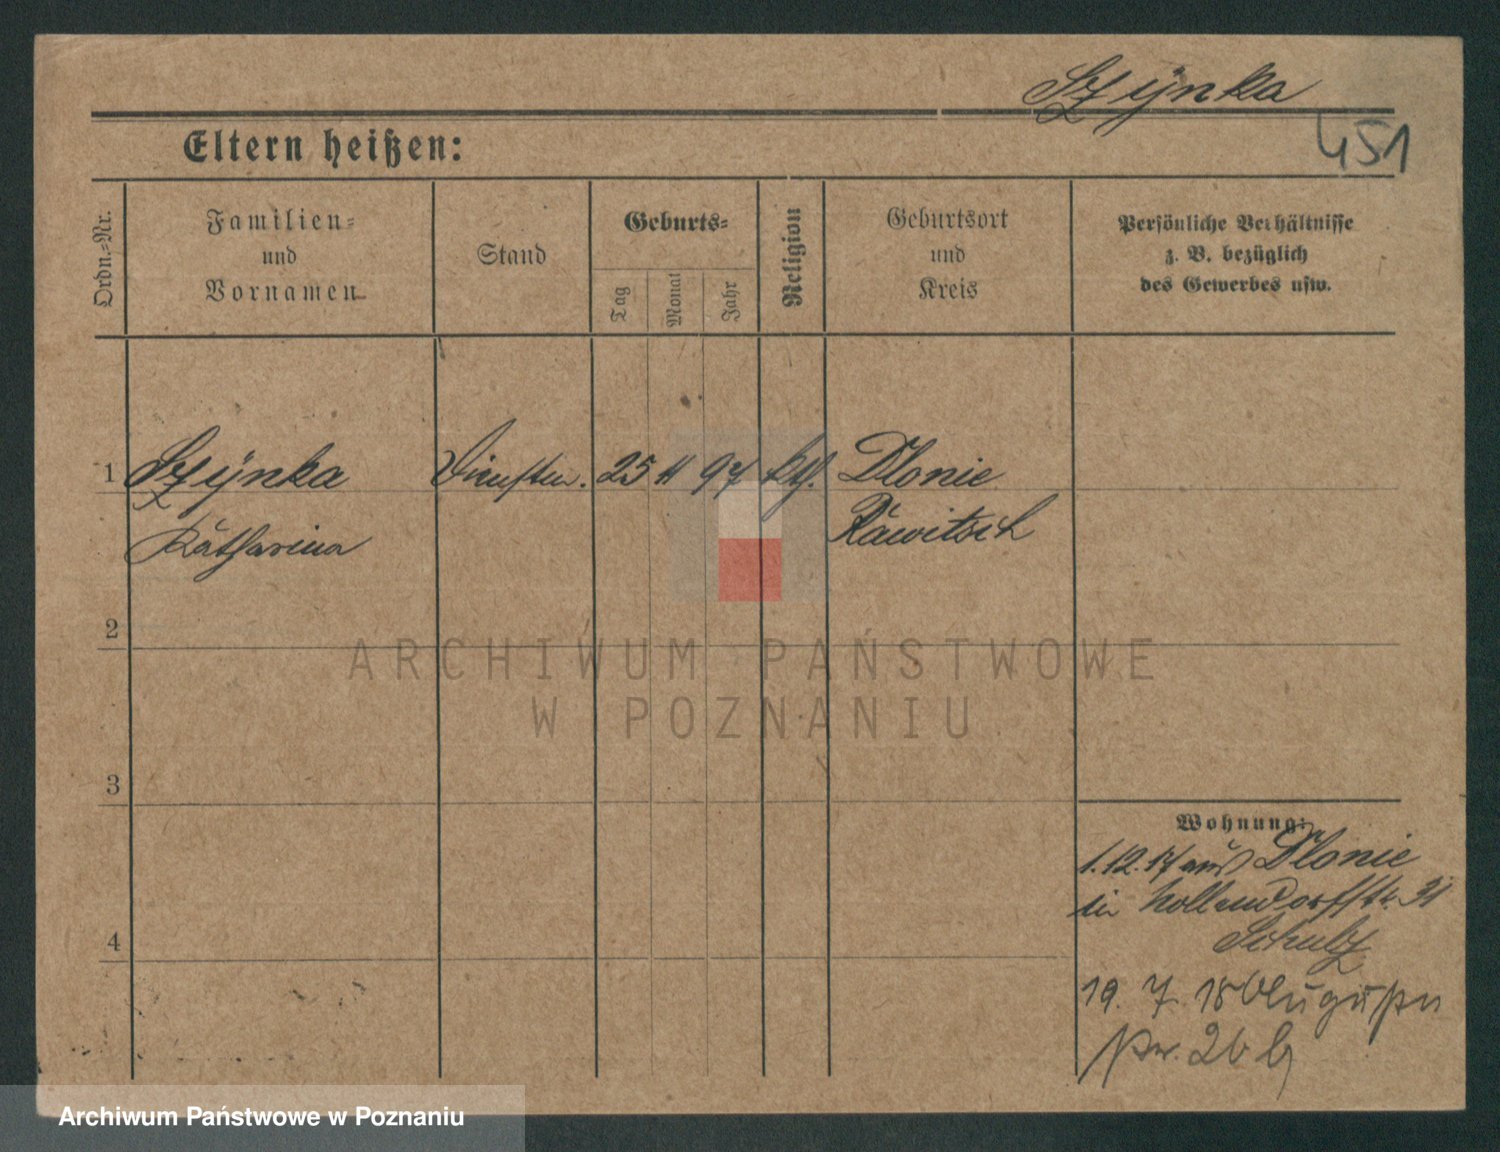 Szÿnka
451
Eltern heißen:
Ordn.=Nr.
Familien=
und
Vornamen
Stand
Geburts=
Tag
Monat
Jahr
Religion
Geburtsort
und
Kreis
Persönliche Verhältnisse
z. B. bezüglich
des Gewerbes usw.
1 Szÿnka Dienstm. 25 11 97 kth. Dlonie
Katharina Rawitsch
2
3
4
Wohnung:
1.12.17 aus Dlonie
in Hollendorffstr. 31
Schulz
19. 7. 18
26 b
ARCHIWUM PAŃSTWOWE
W POZNANIU
Archiwum Państwowe w Poznaniu